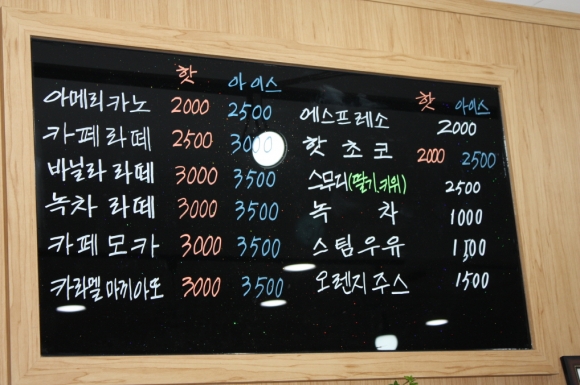 핫 아이스
아메리카노 2000 2500
카페라떼 2500 3000
바닐라 라떼 3000 3500
녹차 라떼 3000 3500
카페모카 3000 3500
카라멜마끼아또 3000 3500
핫 아이스
에스프레소 2000
핫초코 2000 2500
스무디(딸기.키위) 2500
녹차 1000
스팀우유 1500
오렌지주스 1500